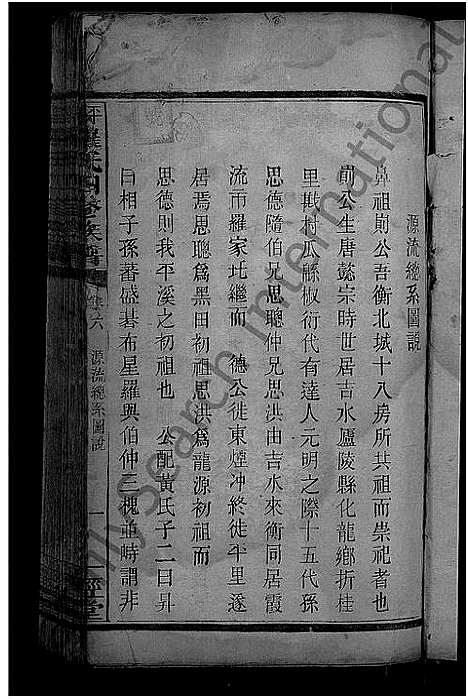 源流總系圖說
鼻祖則公吾衡北城十八房所共祖而崇祀者也
則公生唐懿宗時世居吉水廬陵縣化龍鄉折桂
里戢村瓜緜椒衍代有達人元明之際十五代孫
思德隨伯兄思聰仲兄思洪由吉水來衡同居霞
流市羅家圫繼而 德公徙東煙冲終徙平里遂
居焉思聰爲黑田初祖思洪爲龍源初祖而
思德則我平溪之初祖也 公配黃氏子二曰昇
曰相子孫蕃盛碁布星羅與伯仲三槐並峙謂非
羅氏四修族譜
集六
源流總系圖說
一
經堂
FamilySearch International